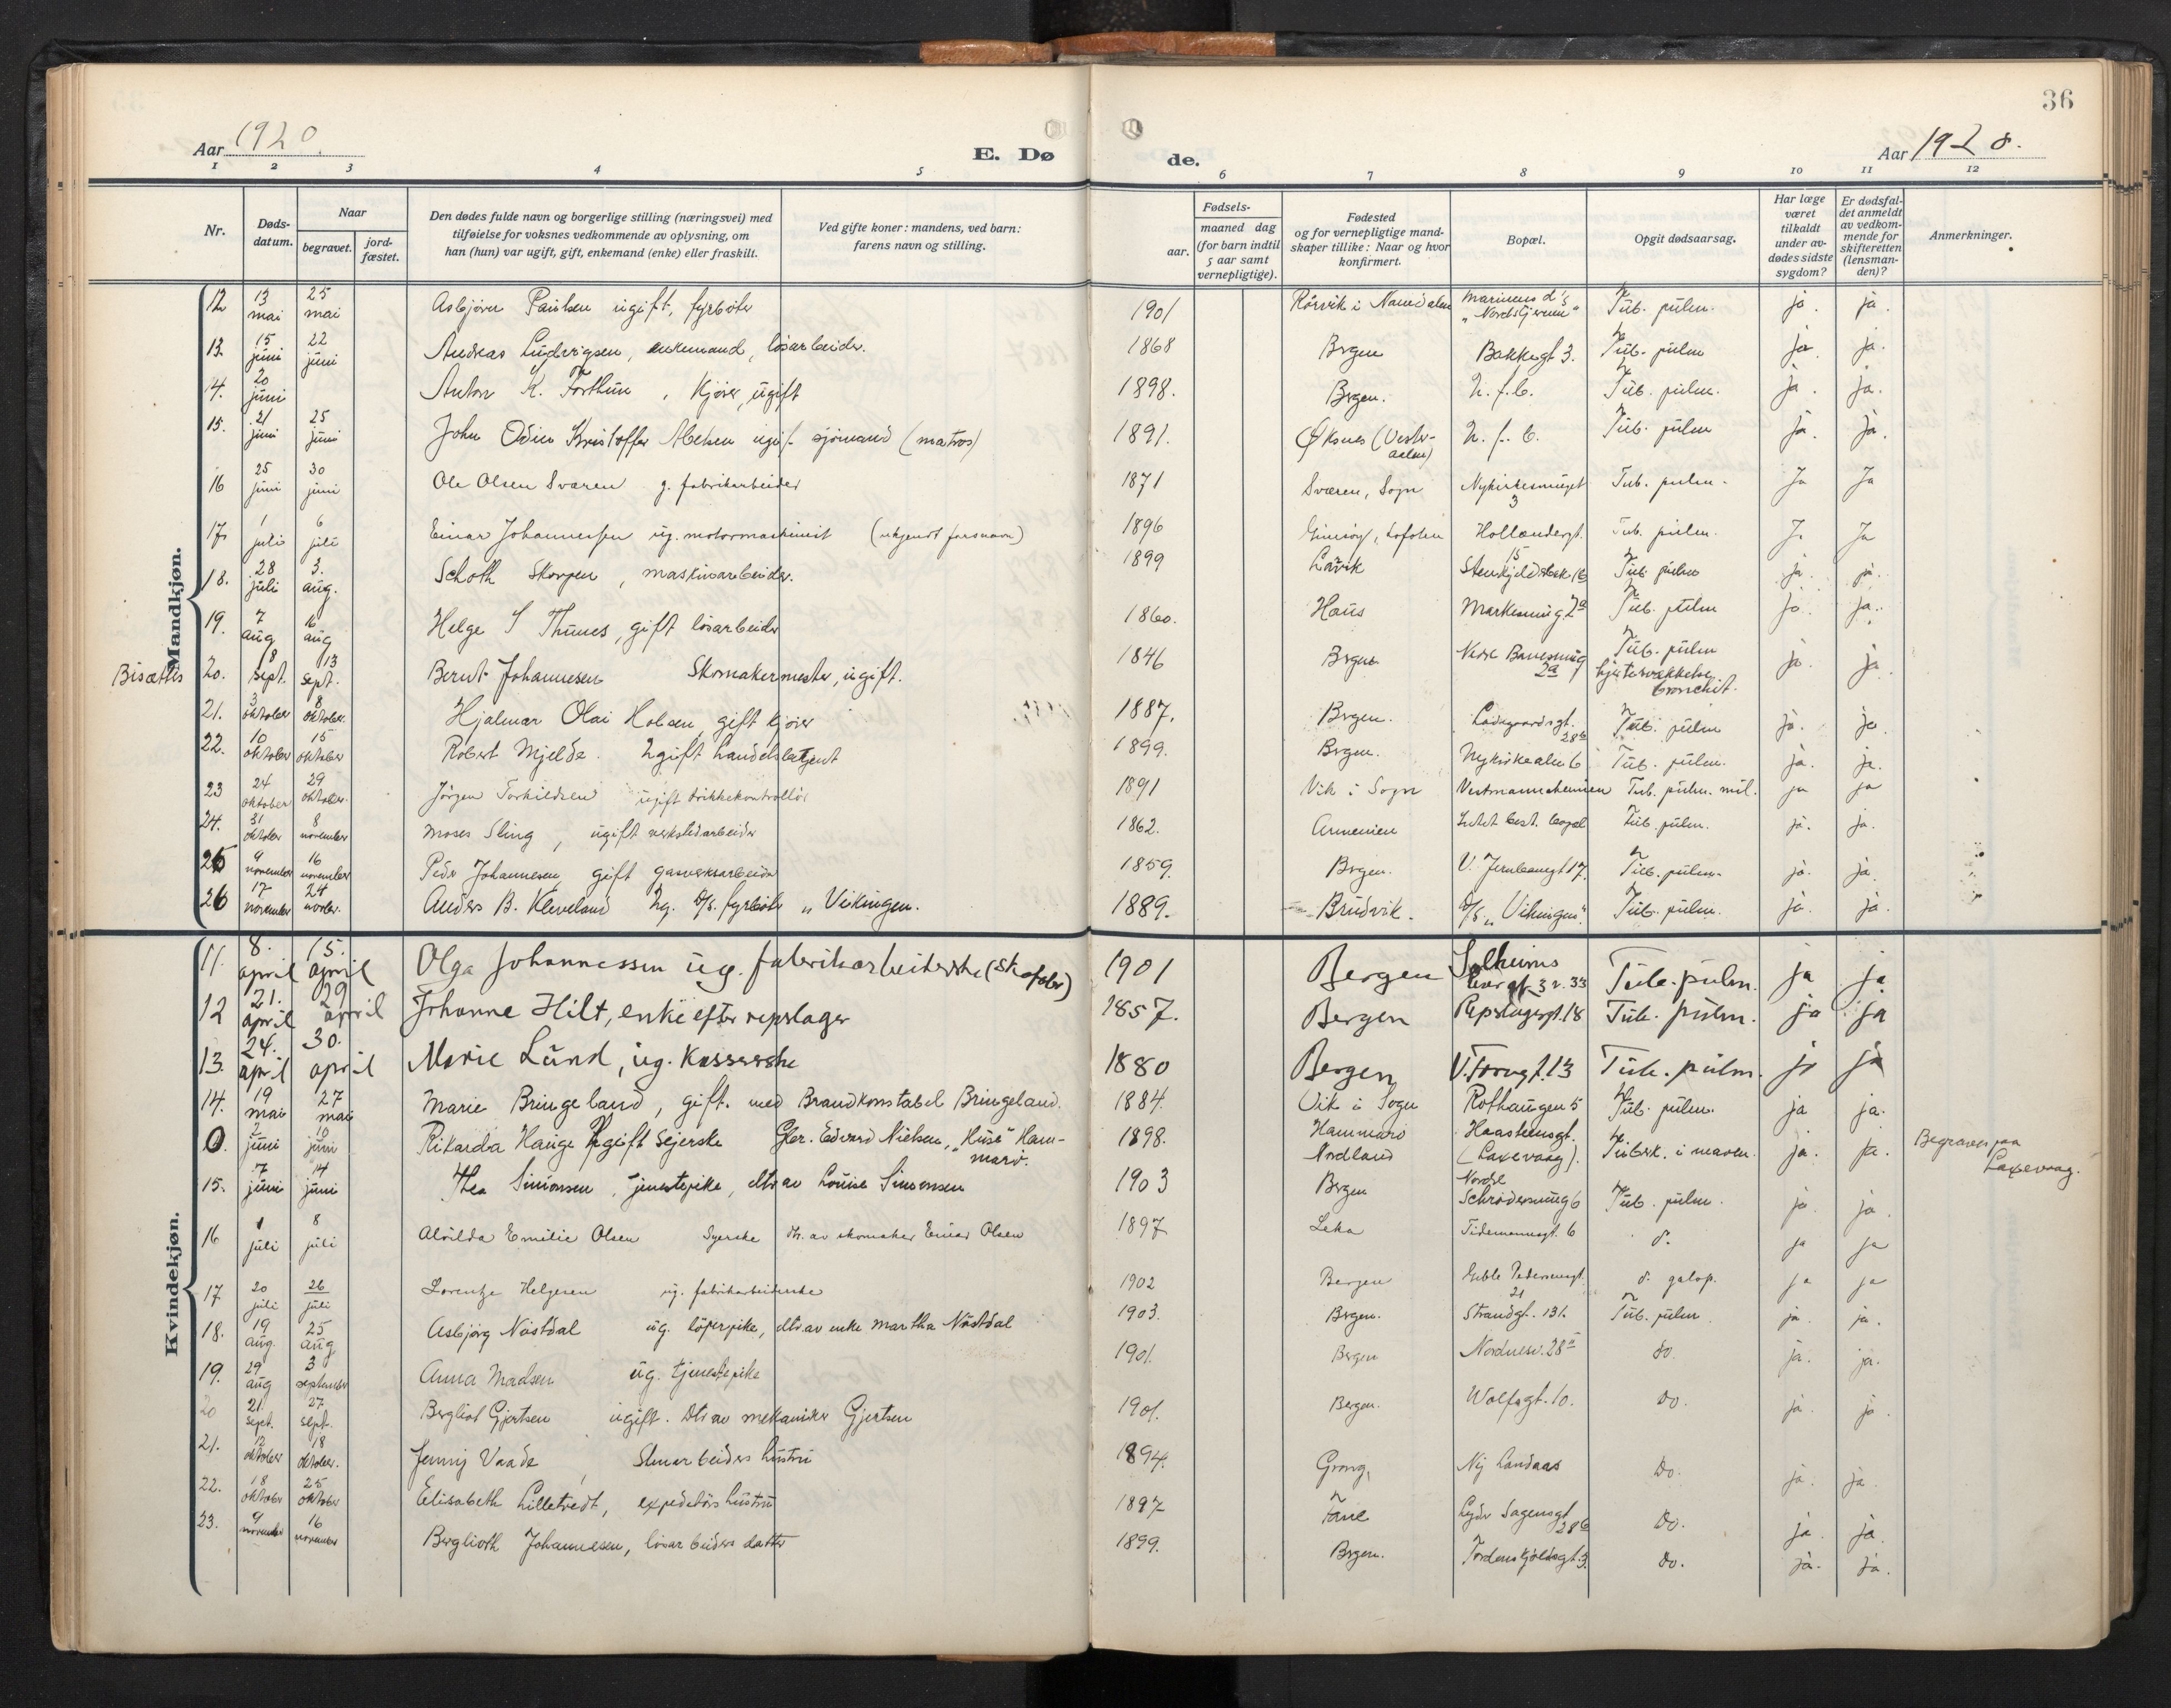 36
Aar 1920.
E. Dø
de.
Aar 1920.
1 2 3 4 5 6 7 8 9 10 11 12
Nr.
Døds-
datum.
Naar
begravet.
jord-
fæstet.
Den dødes fulde navn og borgerlige stilling (næringsvei) med
tilføielse for voksnes vedkommende av oplysning, om
han (hun) var ugift, gift, enkemand (enke) eller fraskilt.
Ved gifte koner: mandens, ved barn:
farens navn og stilling.
Fødsels-
aar.
maaned dag
(for barn indtil
5 aar samt
vernepligtige).
Fødested
og for vernepligtige mand-
skaper tillike: Naar og hvor
konfirmert.
Bopæl.
Opgit dødsaarsag.
Har læge
været
tilkaldt
under av-
dødes sidste
sygdom?
Er dødsfal-
det anmeldt
av vedkom-
mende for
skifteretten
(lensman-
den)?
Anmerkninger.
Mandkjøn.
12 13 mai 25 mai Asbjørn Paulsen ugift, fyrbøter 1901 Rørvik i Namdalen Marinens d/s "Nordstjernen" Tub. pulm. ja. ja.
13. 15 juni 22 juni Andreas Ludvigsen, enkemand, løsarbeider. 1868 Brgen Bakkegt 3. Tub. pulm ja. ja.
14. 20 juni Anton K. Forthun, kjører, ugift 1898. Brgen. U. f. b. Tub. pulm. ja. ja.
15. 21 juni 25 juni John Odin Kristoffer Abelsen ugif. sjömand (matros) 1891. Øksnes (Vester-aalen) U. f. b. Tub. pulm ja. ja.
16 25 juni 30 juni Ole Olsen Sværen g. fabrikarbeider 1871 Sværen, Sogn Nykirkesmuget 3 Tub. pulm. Ja Ja
17. 1 juli 6 juli Einar Johannessen ug. motormaskinist (ukjendt farsnavn) 1896 Gimsøy, Lofoten Hollændergt. 15 Tub. pulm. Ja Ja
18. 28 juli 3. aug. Schoth Skorpen, maskinarbeider. 1899 Lavik Stenkjelderbak 16 Tub. pulm ja. ja.
19. 7 aug 16 aug Helge S Thunes, gift løsarbeider 1860. Haus Markesmug 2a Tub. pulm ja. ja.
Bisættes 20. 8 sept. 13 sept. Bernt Johannesen Skomakermester, ugift. 1846 Brgen Nedre Banesmug 2a Tub. pulm hjertesvækkelse. bronchit. ja. ja
21. 3 oktober 8 oktober. Hjalmar Olai Holsen, gift kjører 1887. Brgen. Ladegaardsgt. 28b Tub. pulm ja. ja.
22. 10 oktober 15 oktober Robert Mjelde. Ugift handelsbetjent 1899. Brgen. Nykirkealm 6 Tub. pulm. ja. ja.
23 24 oktober 29 oktober. Jørgen Torkildsen ugift trikkekontrollør 1891 Vik i Sogn Vestmannaheimen Tub. pulm. mil. ja ja
24. 31 oktober 8 november Moses Sling, ugift verkstedarbeider 1862. Armenien Intet best. bopæl Tub. pulm. ja. ja.
25 9 november 16 november Peder Johannesen, gift gasverksarbeider 1859. Brgen. V. Jernbanegt 17. Tub. pulm. ja. ja.
26 17 november 24 novbr. Anders B. Kleveland Ug. D/s. fyrbøter "Vikingen. 1889. Brudvik. D/s. "Vikingen". Tub. pulm. ja. ja.
Kvindekjøn.
11. 8. april 15. april Olga Johannessen ug. fabrikarbeiderske (Skofabr) 1901 Bergen Solheims 33 Tub. pulm. ja ja
12 21. april 29 april Johanne Hilt, enke efter repslager 1857. Bergen Repslagergt. 18 Tub. pulm. ja ja
13. 24. april 30. april Marie Lund, ug. Kassererske 1880 Bergen V. Torvgt. 13 Tub. pulm. ja ja
14. 19 mai 27 mai Marie Bringeland, gift. med Brandkonstabel Bringeland. 1884. Vik i Sogn Rothaugen 5 Tub. pulm. ja ja.
0. 2 juni 10 juni Rikarda Hauge Ugift Sejerske Gbr. Edvard Nielsen, "Huse" Ham-marö. 1898. Hammarö Nordland Haasteensgt. (Laxevaag). Tuberk. i maven. ja. ja. Begraves paa Laxevaag.
15. 7 juni 14 juni Thea Simonsen, tjenestepike, dtr av Louise Simonsen 1903 Bergen Nordre Schrödersmug 6 Tub. pulm. ja. ja.
16 1 juli 8 juli Alvilda Emilie Olsen Syerske dtr. av skomaker Einar Olsen 1897 Leka Tidemannsgt. 6 do. ja ja
17. 20 juli 26 juli Lorentze Helgesen ug. fabrikarbeiderske 1902 Bergen Gable Pedersensgt. 21 do. galop. ja ja
18. 19 aug. 25 aug Asbjørg Nöstdal ug. löperpike, dtr. av enke Martha Nöstdal 1903. Brgen. Strandgt. 131. Tub. pulm. ja. ja.
19. 29 aug 3 september Anna Madsen ug. tjenestepike 1901. Bergen Nordnesv. 28 do. ja. ja.
20 21. sept. 27. sept. Bergliot Gjertsen ugift. Dtr av mekaniker Gjertsen 1901. Bergen. Wolfsgt. 10. Do. ja. ja.
21. 12 oktober 18 oktober. Jenny Vaade Stenarbeiders hustru 1894. Grong, Ny Landaas Do. ja. ja.
22. 18 oktober 25 oktober Elisabeth Lilletvedt, expeditörs hustru 1897 Fane Lyder Sagensgt 28b Do. ja. ja.
23. 9 november 16 november Berglioth Johannesen, løsarbeiders datter 1899. Brgen. Tordenskjoldsgt. 3. Do. ja. ja.